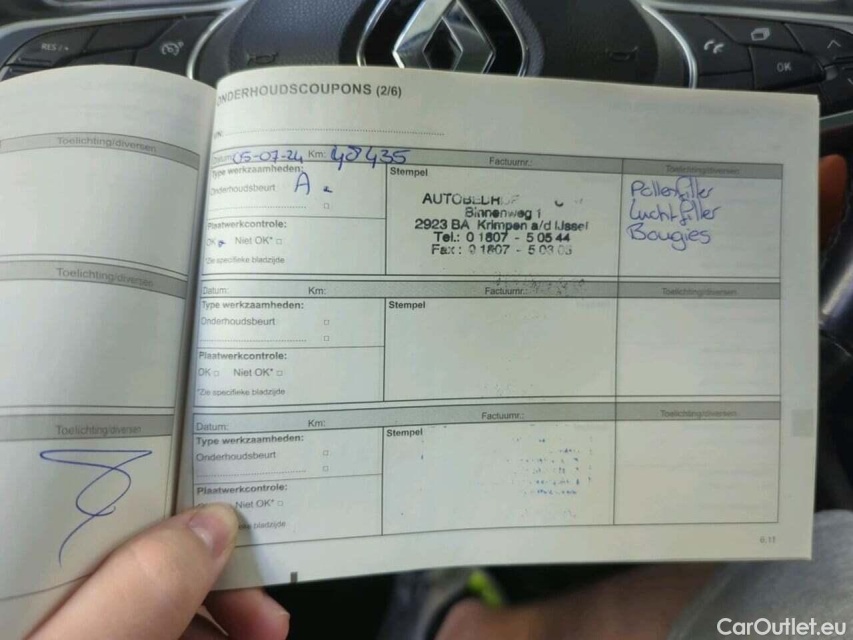 RES
OK
ONDERHOUDSCOUPONS (2/6)
Toelichting/diversen
Datum: 05-07-24 Km: 48435 Factuurnr.: Toelichting/diversen
Type werkzaamheden:
Onderhoudsbeurt A
Plaatwerkcontrole:
OK Niet OK*
*Zie specifieke bladzijde
Stempel
Binnenweg 1
2923 BA Krimpen a/d IJssel
Tel.: 0 1807 - 5 05 44
Fax: 0 1807 -
Pollenfilter
Luchtfilter
Bougies
Toelichting/diversen
Datum: Km: Factuurnr.: Toelichting/diversen
Type werkzaamheden:
Onderhoudsbeurt
Plaatwerkcontrole:
OK Niet OK*
*Zie specifieke bladzijde
Stempel
Toelichting/diversen
Datum: Km: Factuurnr.: Toelichting/diversen
Type werkzaamheden:
Onderhoudsbeurt
Plaatwerkcontrole:
Niet OK*
bladzijde
Stempel
CarOutlet.eu